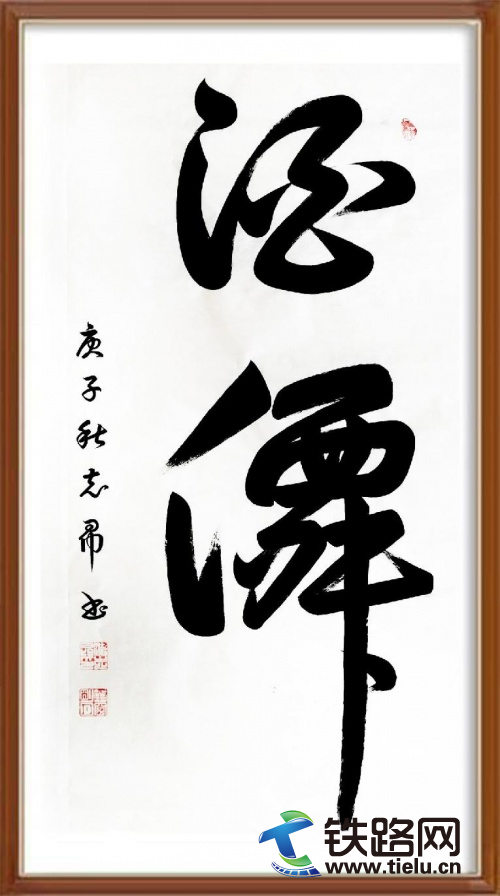 酒僊
庚子秋志昂书
铁路网
www.tielu.cn